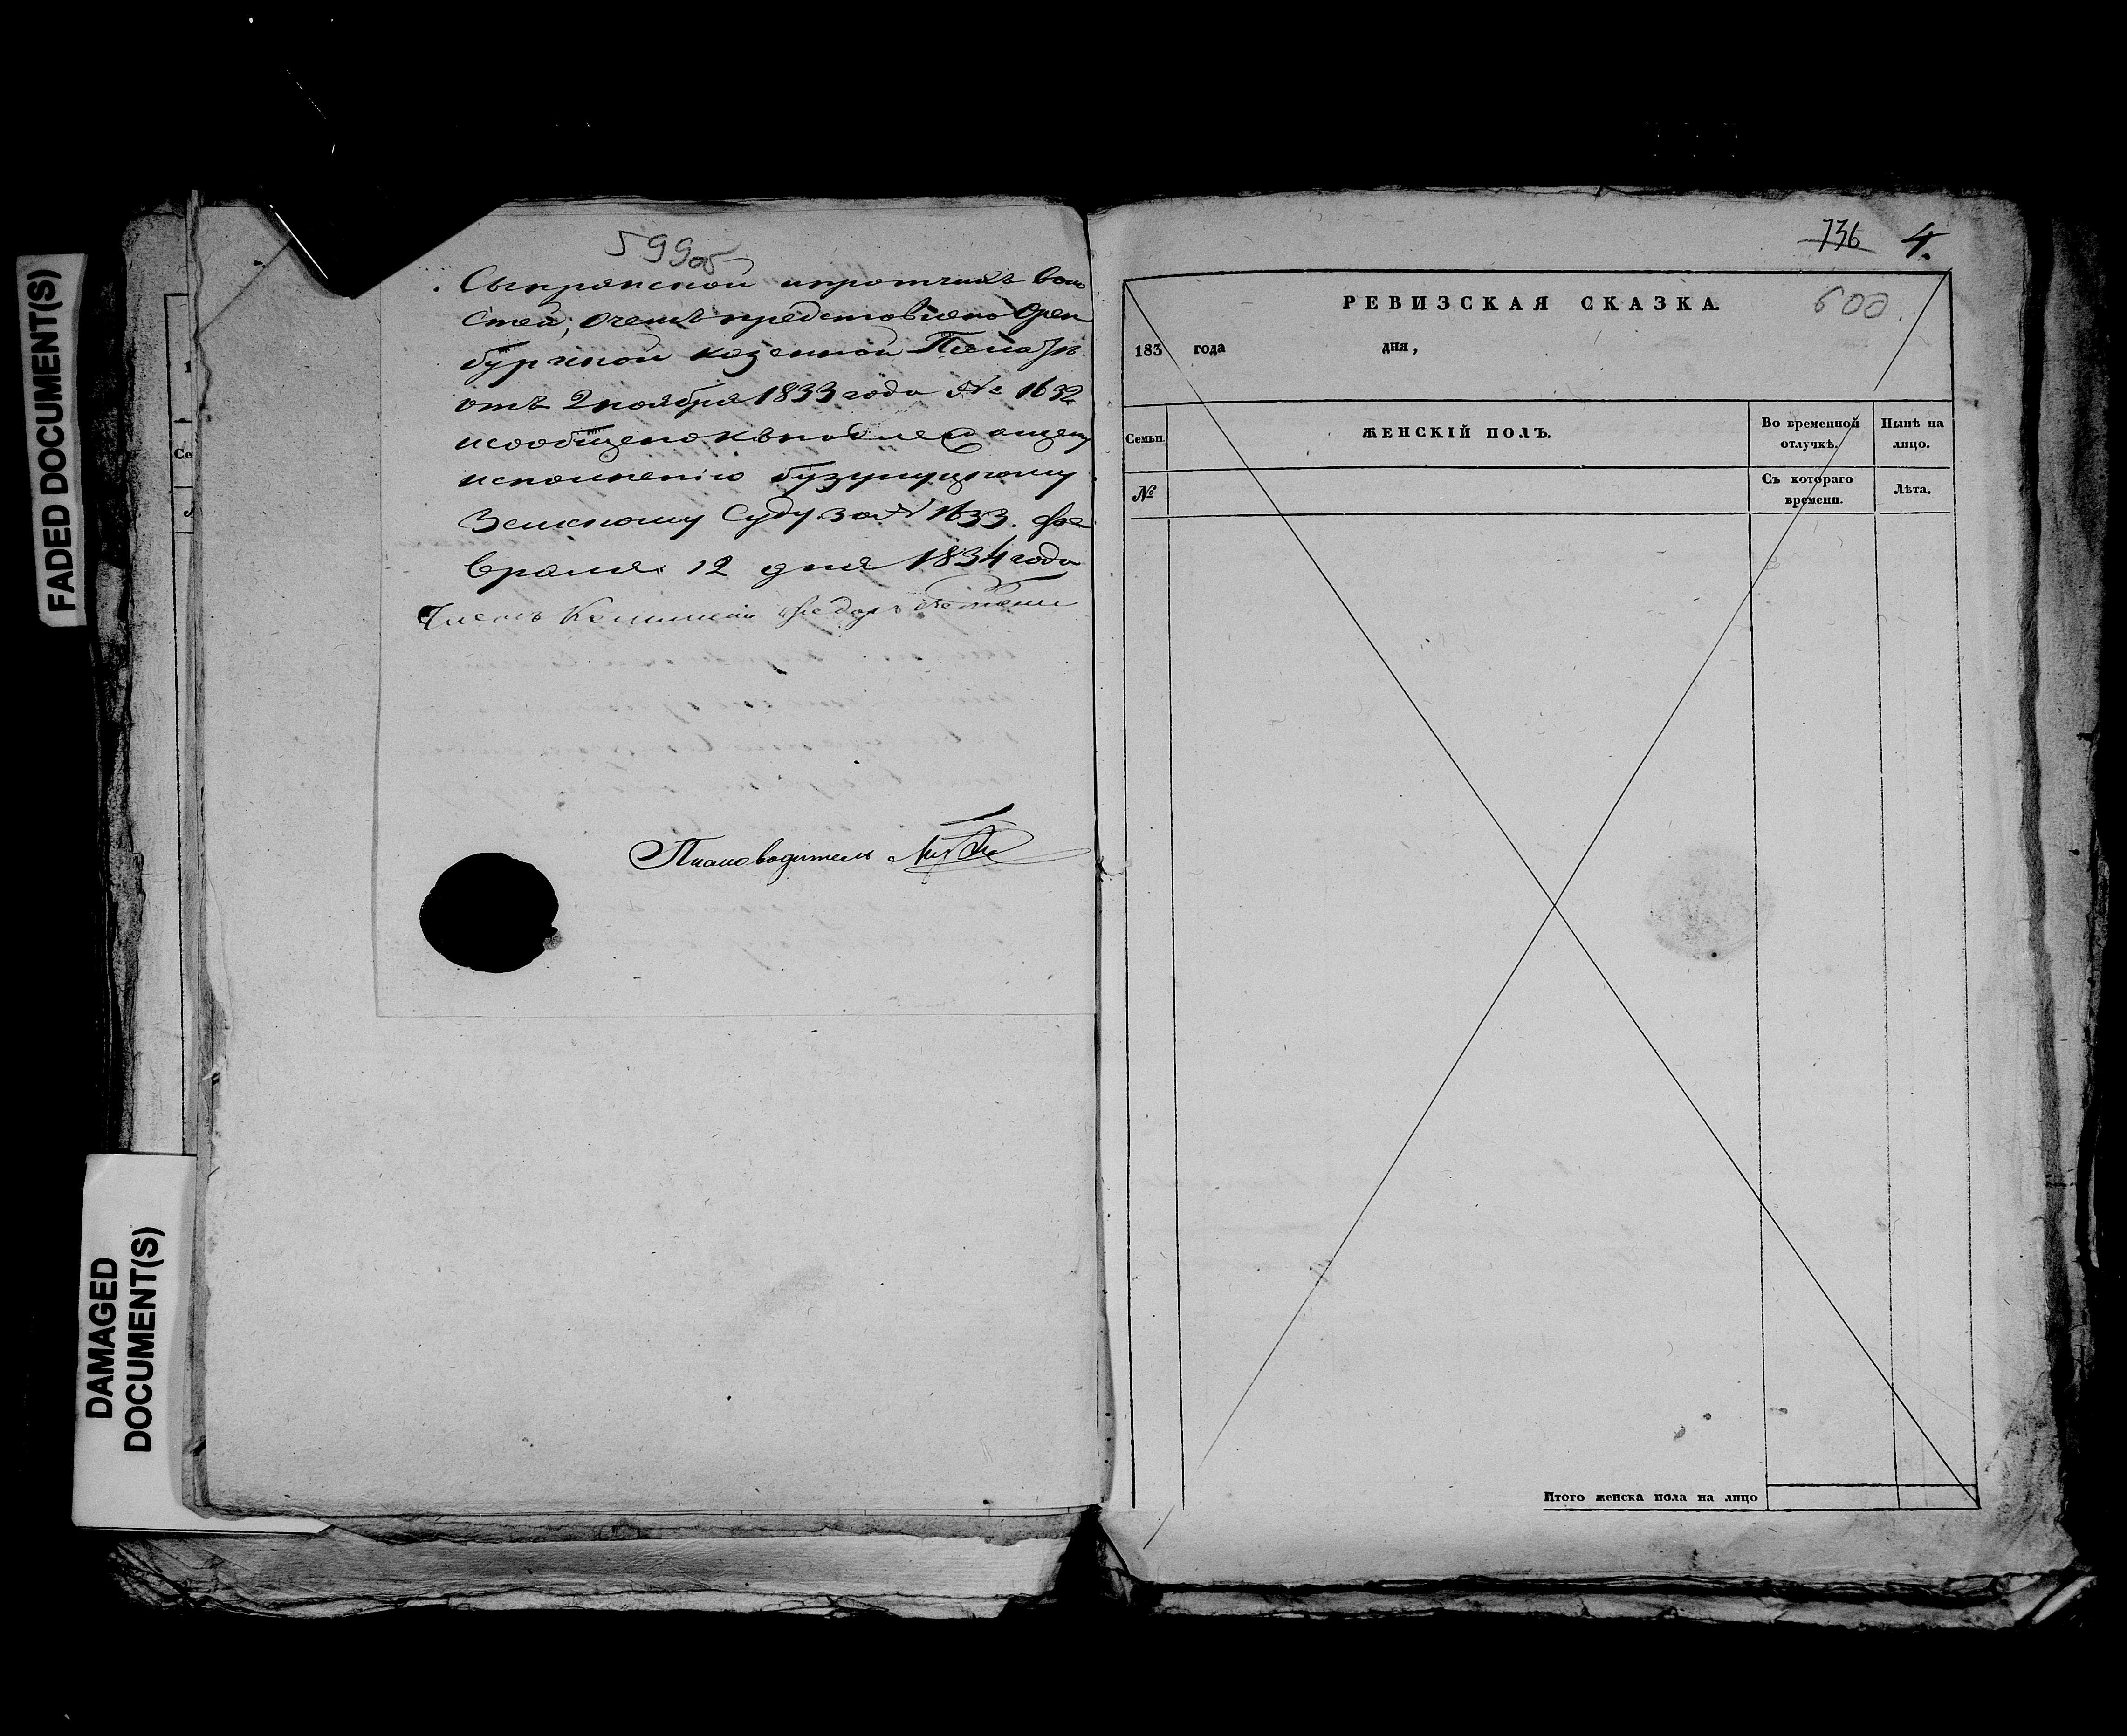 FADED DOCUMENT(S)
DAMAGED
DOCUMENT(S)
1
Се
599об
и протчихъ воло
стей, о чемъ представлено Орен
бургской казенной Палатѣ
отъ 2 ноября 1833 года № 1632
и сообщено къ надлежащему
исполнению бузулуцкому
Земскому Суду за № 1633. фе
враля 12 дня 1834 года
Членъ Комиссии
736 4.
600
РЕВИЗСКАЯ СКАЗКА.
183 года дня,
Семьи.
ЖЕНСКІЙ ПОЛЪ.
Во временной отлучкѣ.
Нынѣ на лицо.
№
Съ котораго времени.
Лѣта.
Итого женска пола на лицо